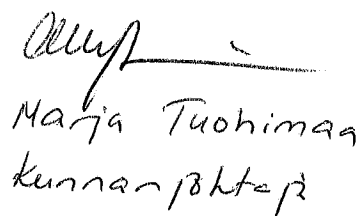 Marja Tuohimaa
Kunnanjohtaja